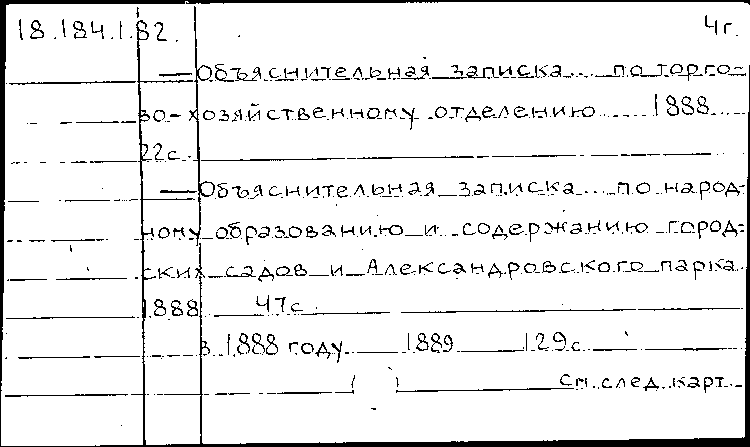 18.184.1.82. 4г.
— Объяснительная записка... по торго-
во-хозяйственному отделению 1888
22с.
— Объяснительная записка... по народ-
ному образованию и содержанию город-
ских садов и Александровского парка
1888 47с.
в 1888 году 1889 129с.
См. след. карт.